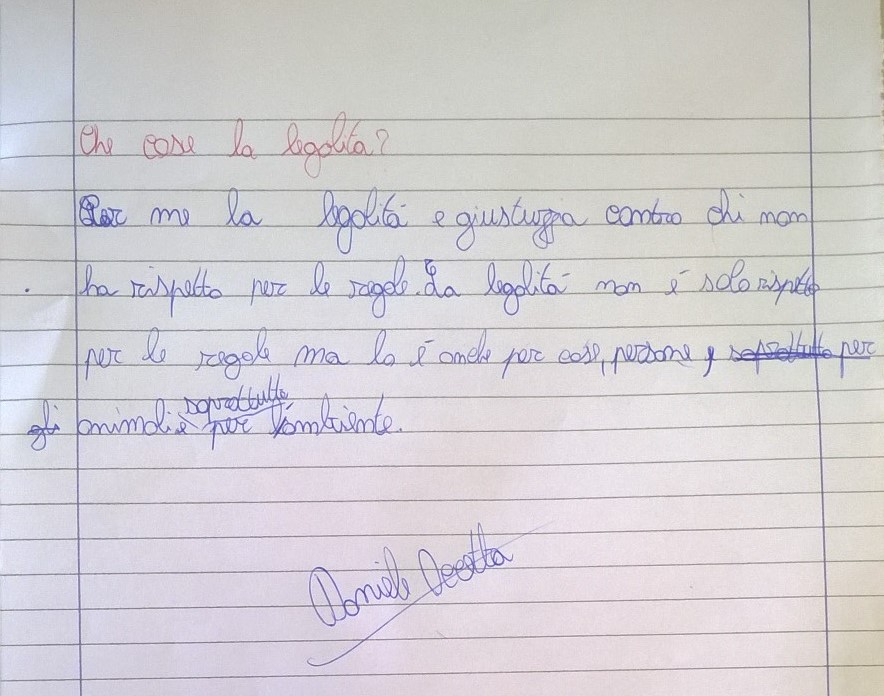 Che cose la legalita?
Per me la legalitá e giustuzzia contro chi non
ha rispetto per le regole. La legalitá non é solo rispetto
per le regole ma lo é anche per cose, persone, soprattutto per
gli animali e soprattutto per l'ambiente.
Daniele